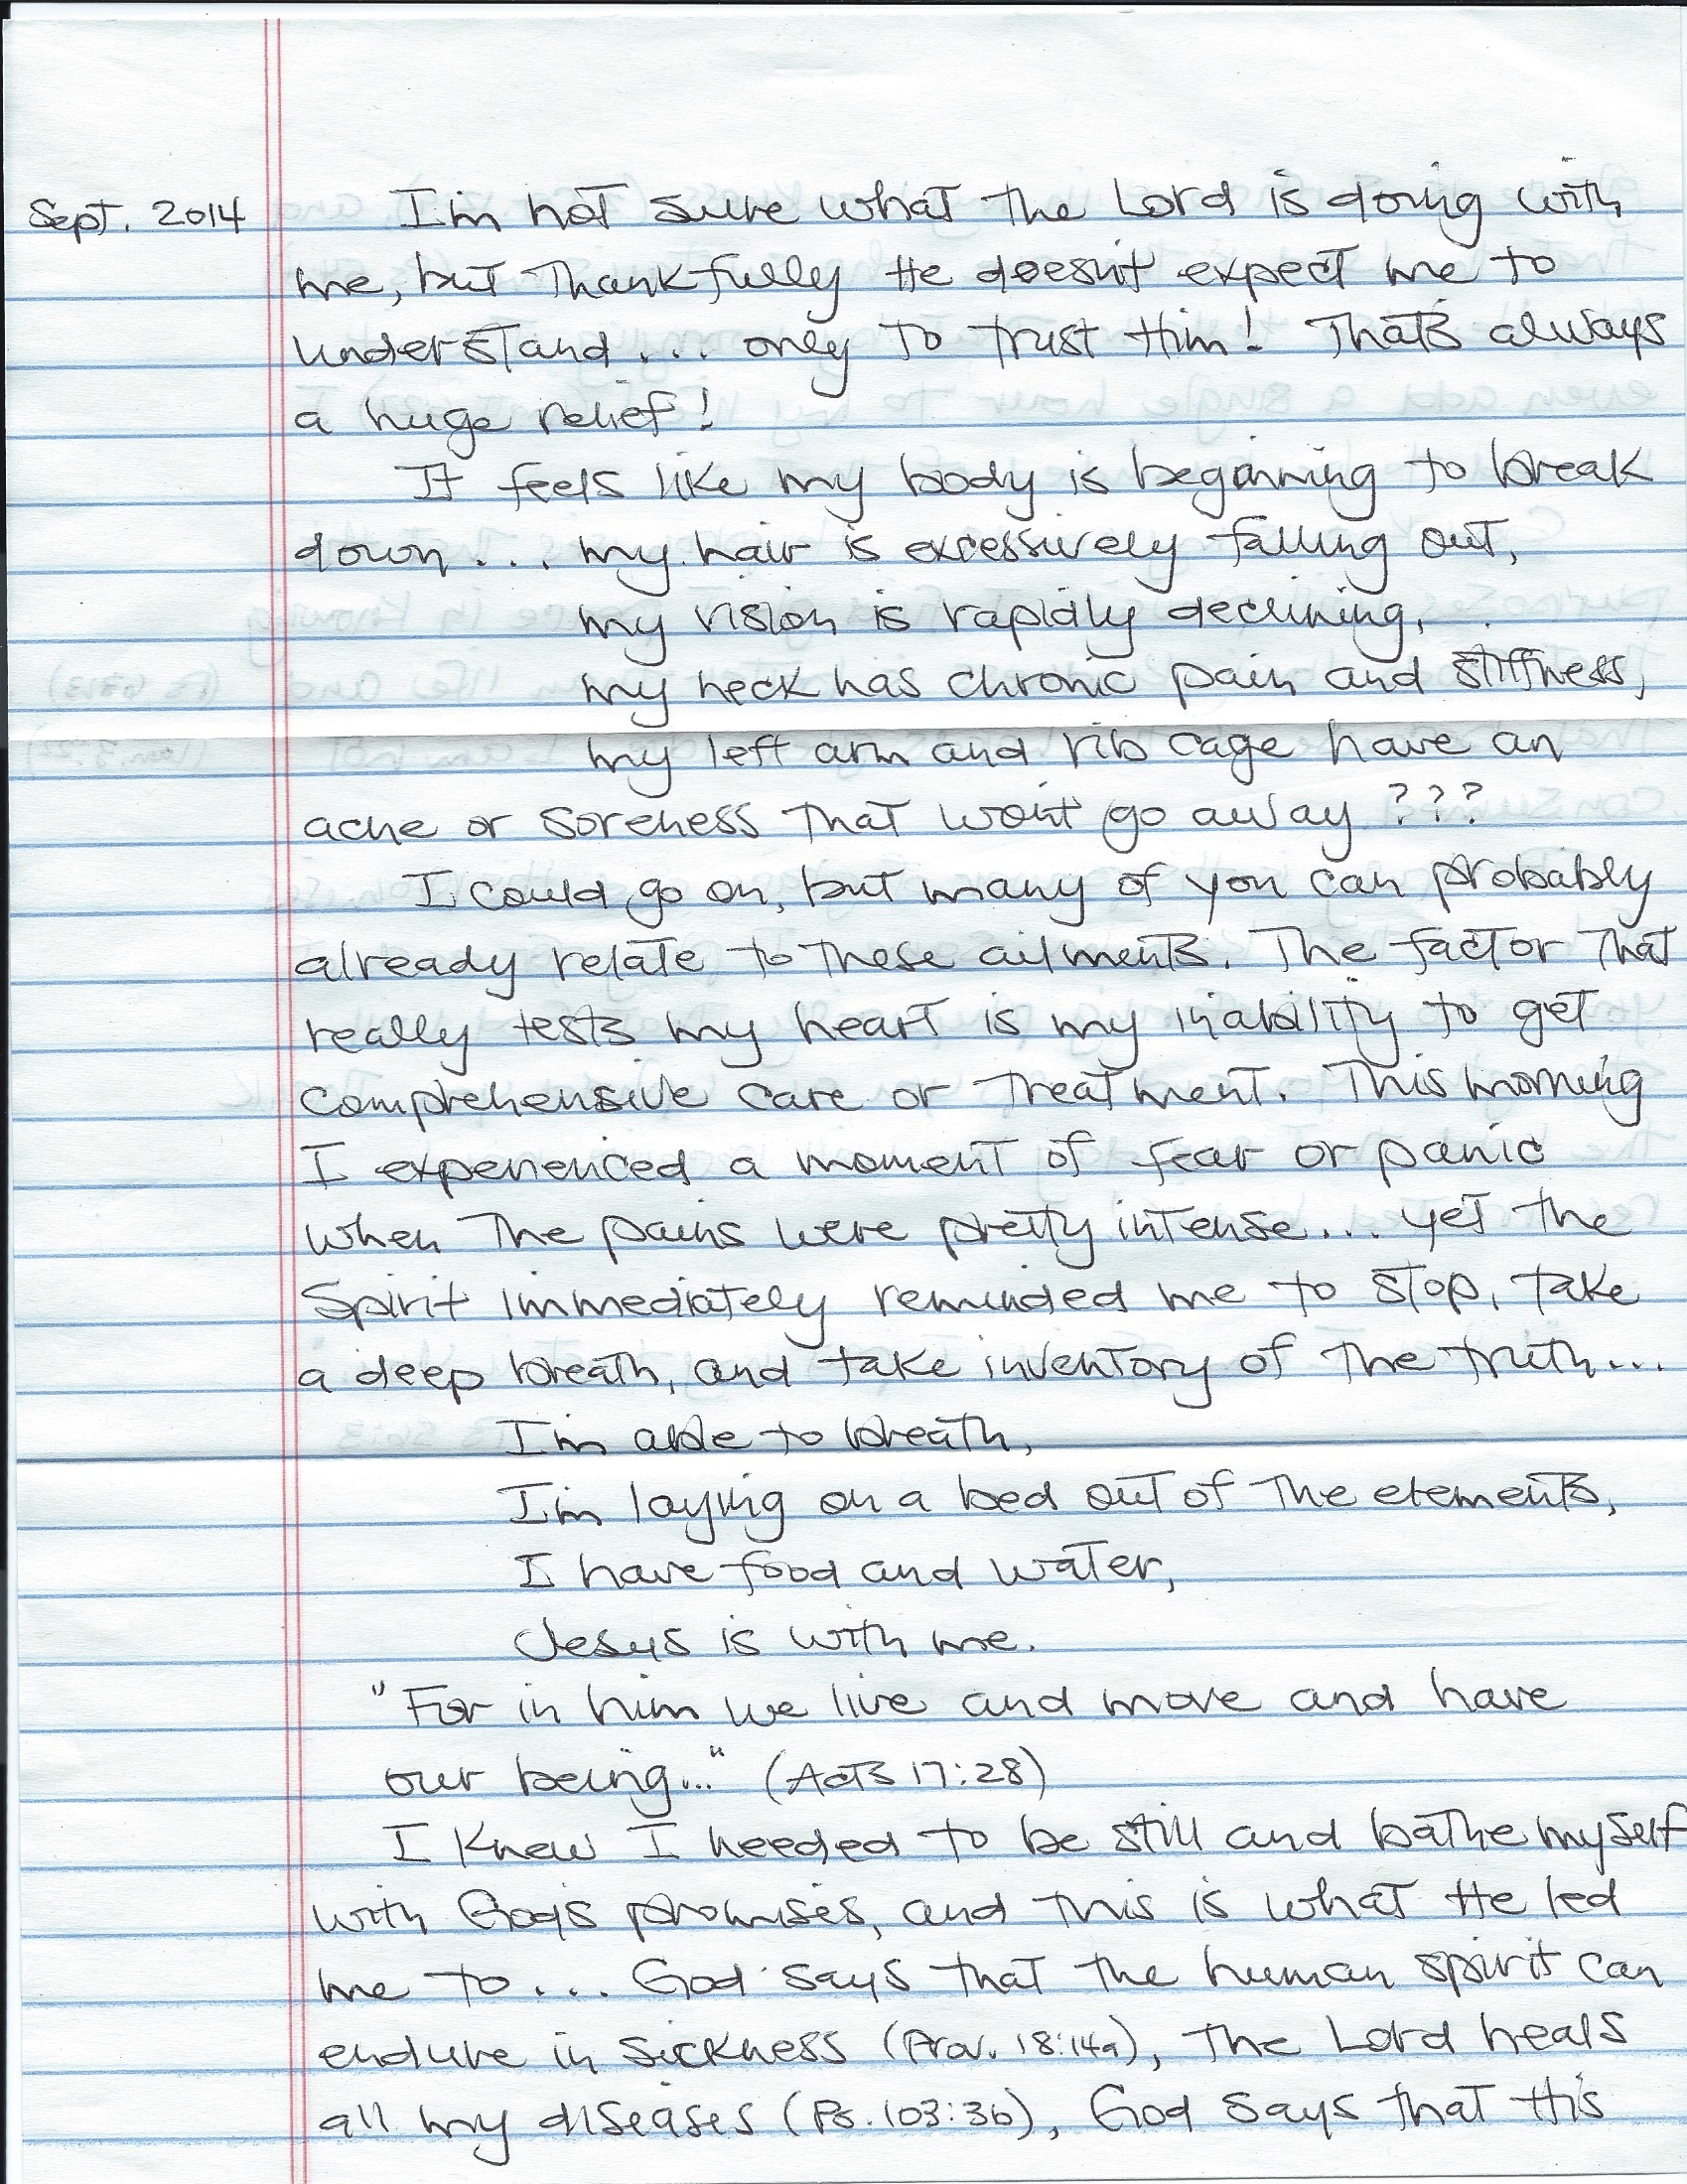 Sept. 2014 I'm not sure what the Lord is doing with
me, but thankfully He doesn't expect me to
understand... only to trust Him! That's always
a huge relief!
It feels like my body is beginning to break
down... my hair is excessively falling out,
my vision is rapidly declining,
my neck has chronic pain and stiffness,
my left arm and rib cage have an
ache or soreness that won't go away ???
I could go on, but many of you can probably
already relate to these ailments. The factor that
really tests my heart is my inability to get
comprehensive care or treatment. This morning
I experienced a moment of fear or panic
when the pains were pretty intense... yet the
Spirit immediately reminded me to stop, take
a deep breath, and take inventory of the truth...
I'm able to breath,
I'm laying on a bed out of the elements,
I have food and water,
Jesus is with me.
"For in him we live and move and have
our being..." (Acts 17:28)
I knew I needed to be still and bathe myself
with God's promises, and this is what He led
me to... God says that the human spirit can
endure in sickness (Prov. 18:14a), The Lord heals
all my diseases (Ps. 103:3b), God says that His